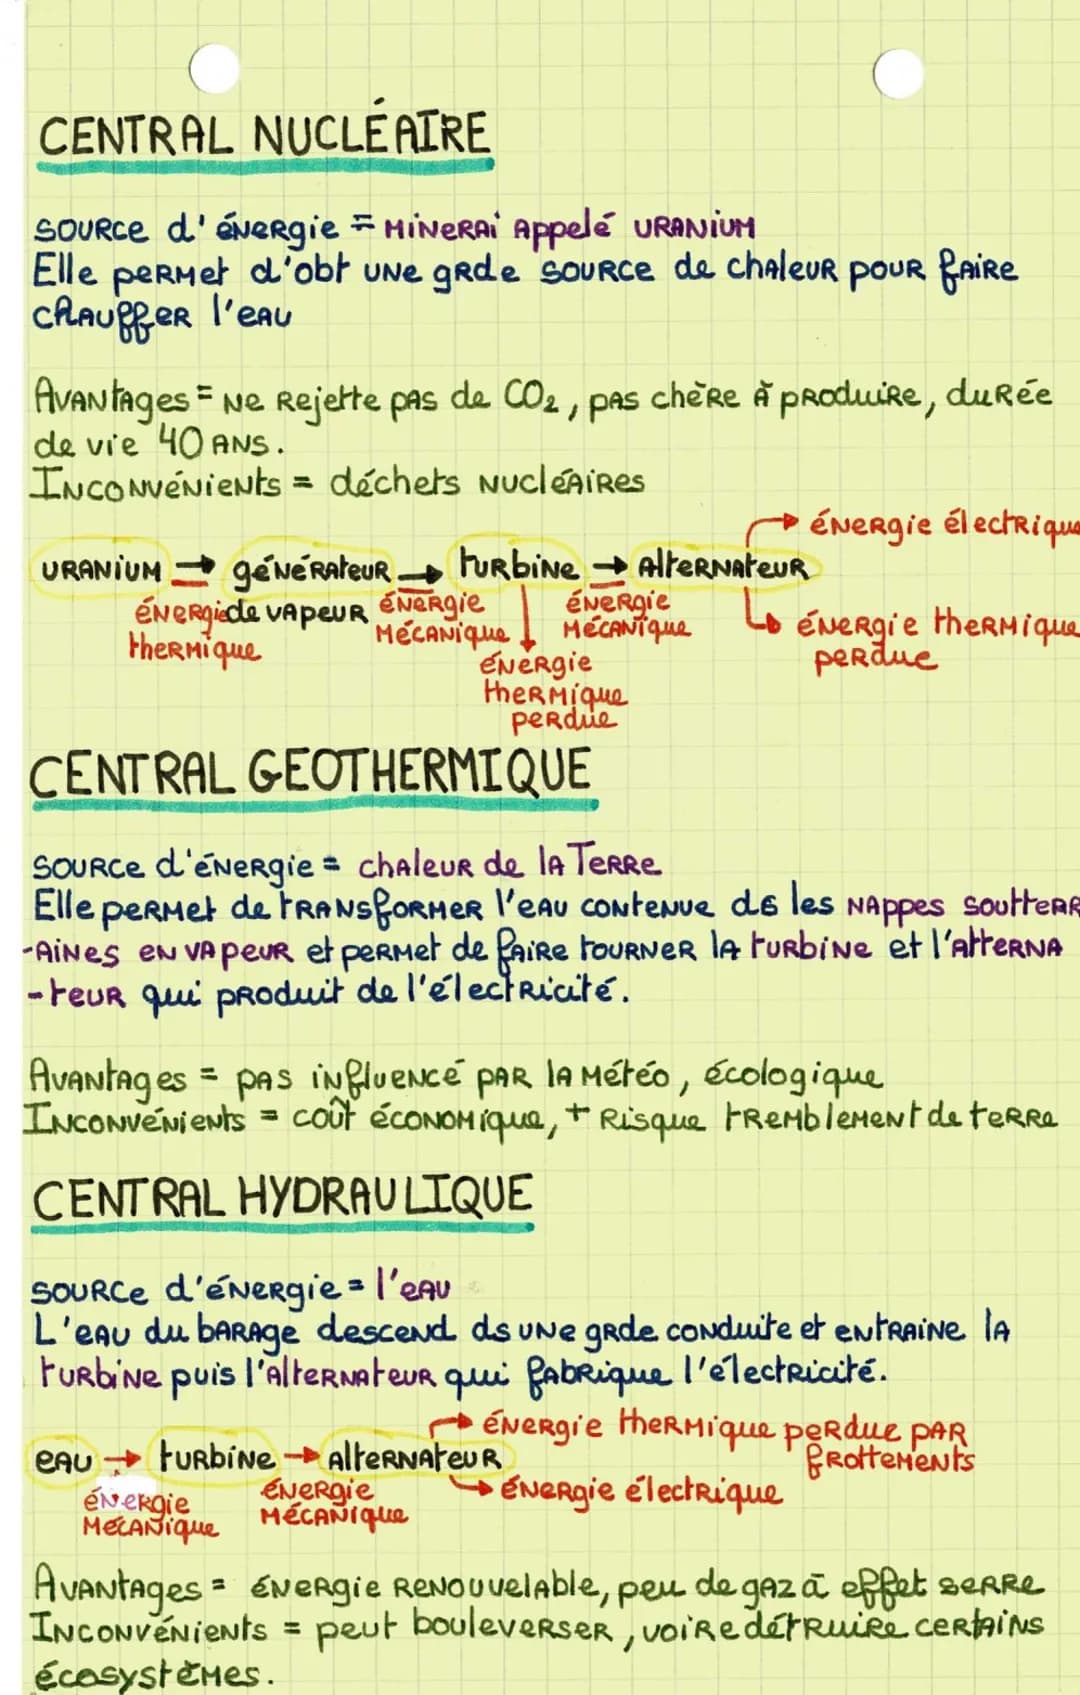 CENTRAL NUCLÉAIRE
SOURCE d'énergie = Minerai appelé URANIUM
Elle permet d'obt une grde source de chaleur pour faire
chauffer l'eau
Avantages = ne rejette pas de CO2, pas chère à produire, durée
de vie 40 ans.
Inconvénients = déchets nucléaires
énergie électrique
URANIUM → générateur → turbine → Alternateur
énergie de vapeur énergie énergie
thermique mécanique mécanique
énergie thermique
perdue
énergie
thermique
perdue
CENTRAL GEOTHERMIQUE
SOURCE d'énergie = chaleur de la Terre
Elle permet de transformer l'eau contenue ds les nappes soutterr
-aines en vapeur et permet de faire tourner la turbine et l'alterna
-teur qui produit de l'électricité.
Avantages = pas influencé par la météo, écologique
Inconvénients = coût économique, + Risque tremblement de terre
CENTRAL HYDRAULIQUE
SOURCE d'énergie = l'eau
L'eau du barage descend ds une grde conduite et entraine la
turbine puis l'alternateur qui fabrique l'électricité.
énergie thermique perdue par
frottements
eau → turbine → alternateur
énergie électrique
énergie énergie
mécanique mécanique
Avantages = énergie renouvelable, peu de gaz à effet serre
Inconvénients = peut bouleverser, voire détruire certains
écosystèmes.